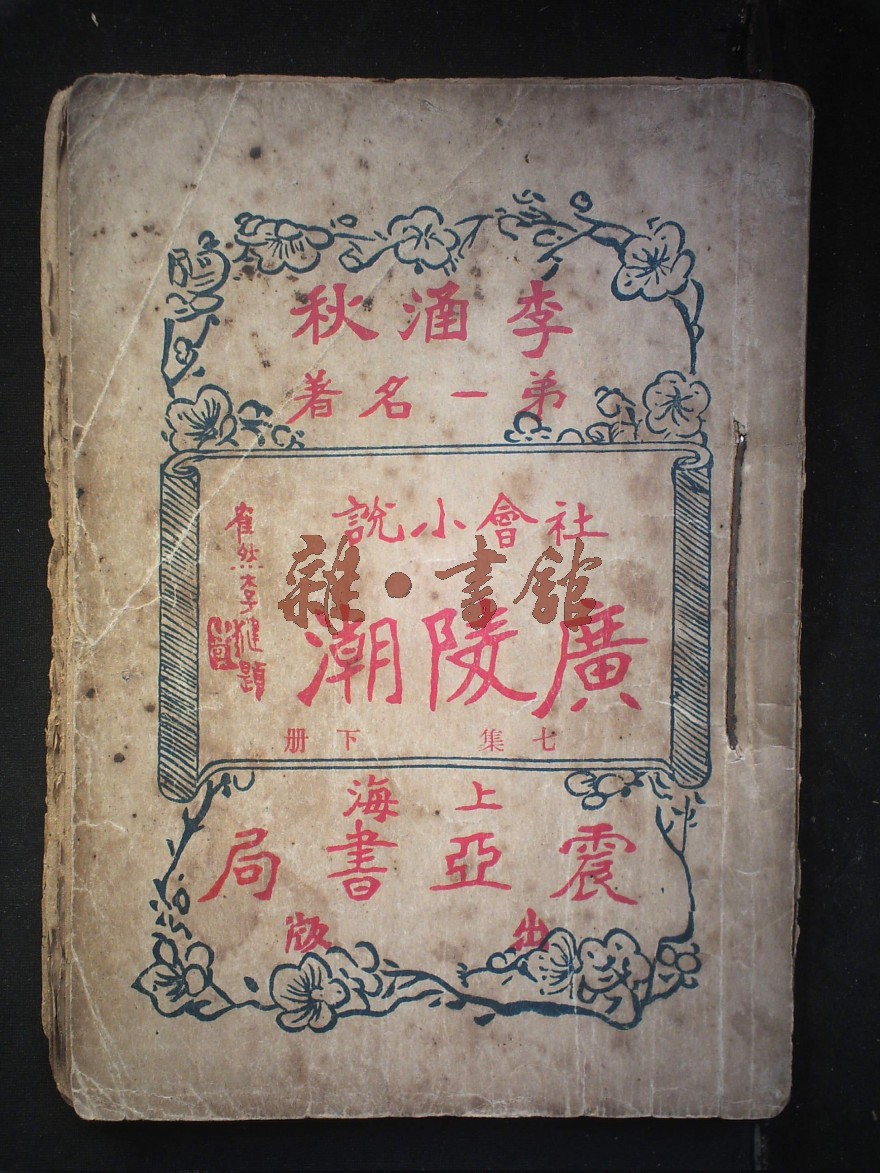 李涵秋
弟一名著
社會小說
廣陵潮
七集 下册
雀然李健題
雜·書館
上海
震亞書局
出版